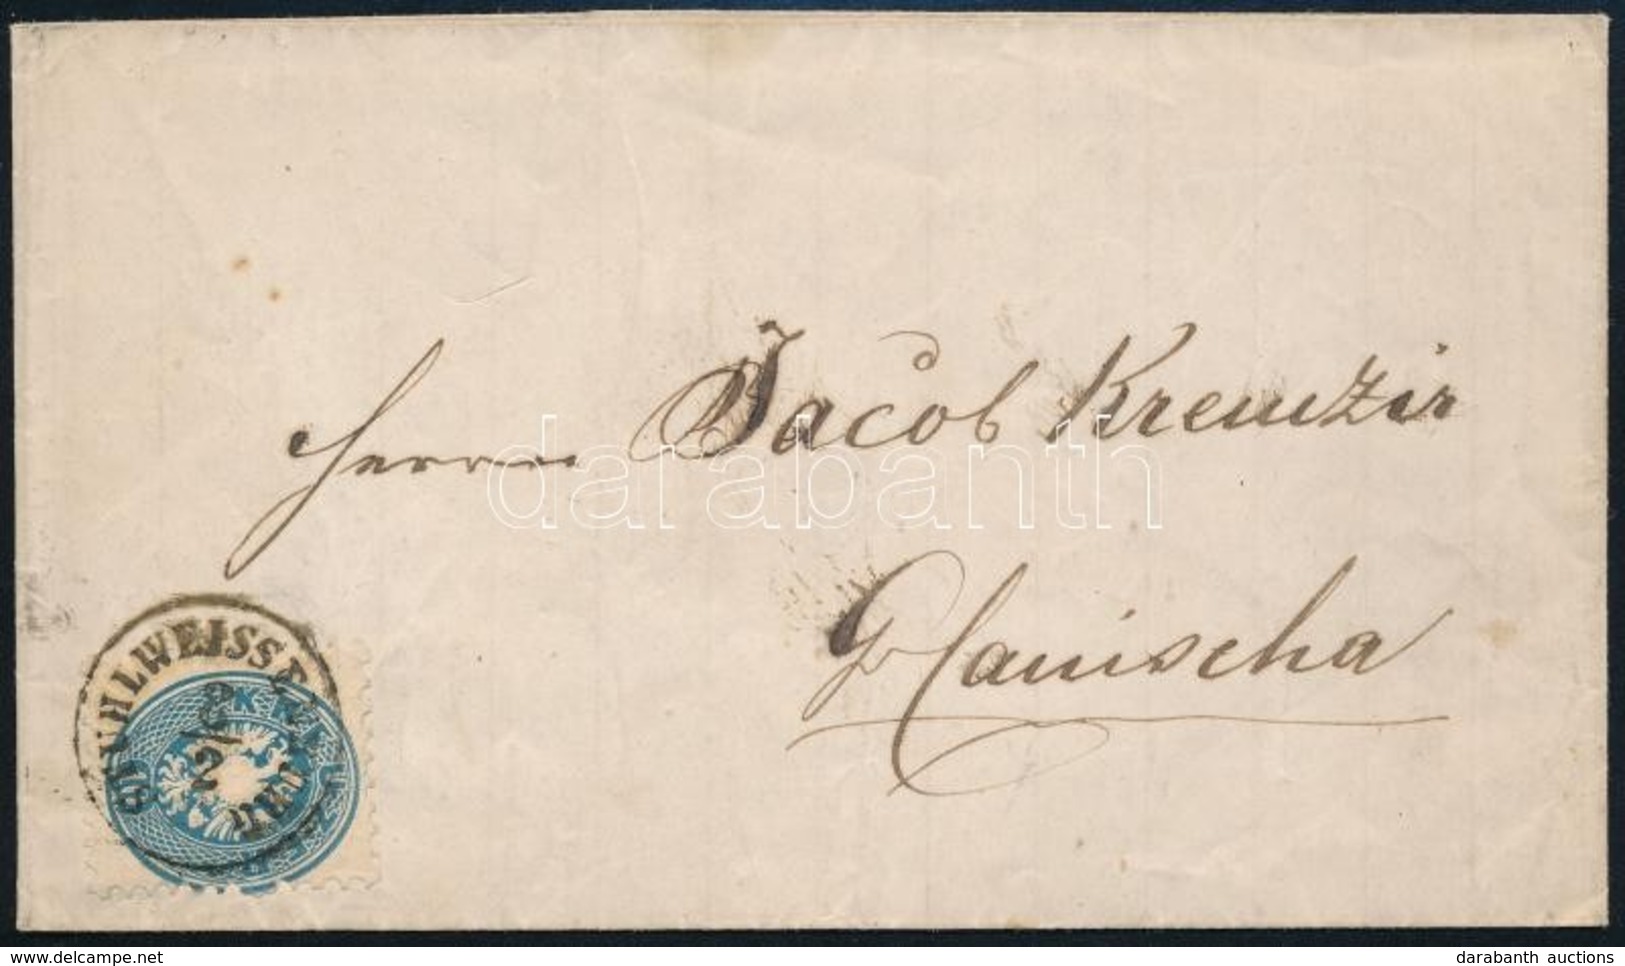 Herrn Jacob Kremzir
Kanischa
STUHLWEISSENBURG
8/2
darabanth
delcampe.net
darabanth auctions